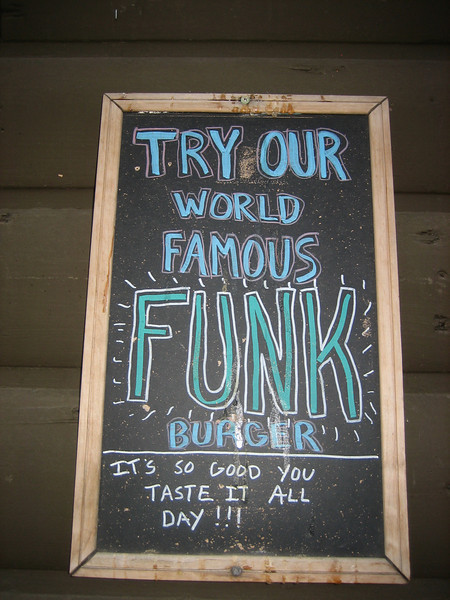 TRY OUR
WORLD
FAMOUS
FUNK
BURGER
IT'S SO GOOD YOU
TASTE IT ALL
DAY!!!